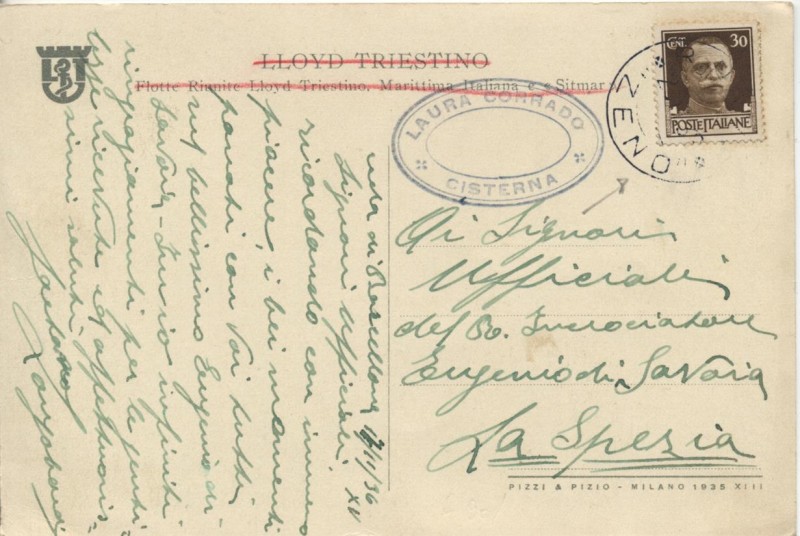 LLOYD TRIESTINO
Flotte Riunite Lloyd Triestino, Marittima Italiana e « Sitmar »
CENT. 30
POSTE ITALIANE
ZENO
LAURA CORRADO
CISTERNA
Ai Signori
Ufficiali
del Ro. Incrociatore
Eugenio di Savoia
La Spezia
PIZZI & PIZIO - MILANO 1935 XIII
di Barcellona 12/11/36 XV
Signori Ufficiali,
ricordando con immenso
piacere, i bei momenti
passati con Voi tutti
sul bellissimo Eugenio di
Savoia - Invio infiniti
ringraziamenti per le genti-
lezze ricevute ed affettuosis-
simi saluti.